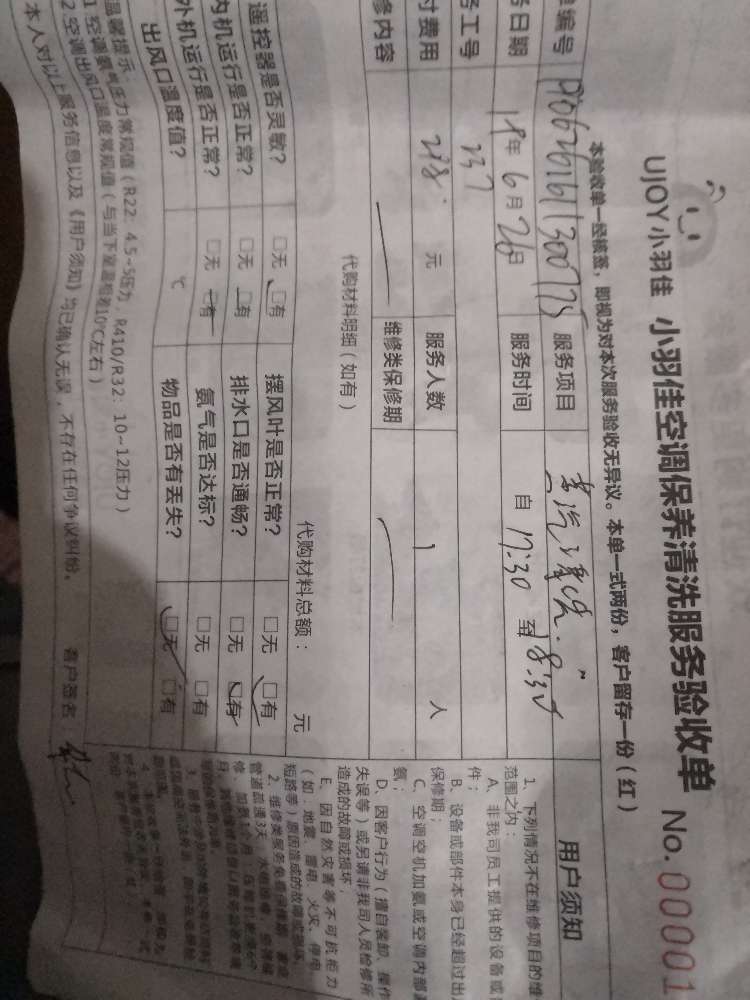 UJOY小羽佳 小羽佳空调保养清洗服务验收单 No.00001
本验收单一经核签，即视为对本次服务验收无异议。本单一式两份，客户留存一份（红）
单编号 服务项目
务日期 年 6月 26日 服务时间 自 17:30 至 18:30
务工号 237
付费用 元 服务人数 1 人
修内容 维修类保修期
代购材料明细（如有） 代购材料总额： 元
遥控器是否灵敏？ □无 □有 摆风叶是否正常？ □无 □有
内机运行是否正常？ □无 □有 排水口是否通畅？ □无 □有
外机运行是否正常？ □无 □有 氨气是否达标？ □无 □有
出风口温度值？ ℃ 物品是否有丢失？ □无 □有
温馨提示
1 空调氨气压力常规值（R22：4.5~5压力，R410/R32：10~12压力）
2 空调出风口温度常规值（与当下室温相差10℃左右）
本人对以上服务信息以及《用户须知》均已确认无误，不存在任何争议纠纷。 客户签名：
用户须知
1、下列情况不在维修项目的维
范围之内：
A、非我司员工提供的设备或
件；
B、设备或部件本身已经超过出
保修期；
C、空调空机加氨或空调内部
氨；
D、因客户行为（擅自装卸、操作
失误等）或另请非我司人员检修所
造成的故障或损坏；
E、因自然灾害等不可抗拒力
（如：地震、雷电、火灾、停电
短路等）原因造成的故障或损坏。